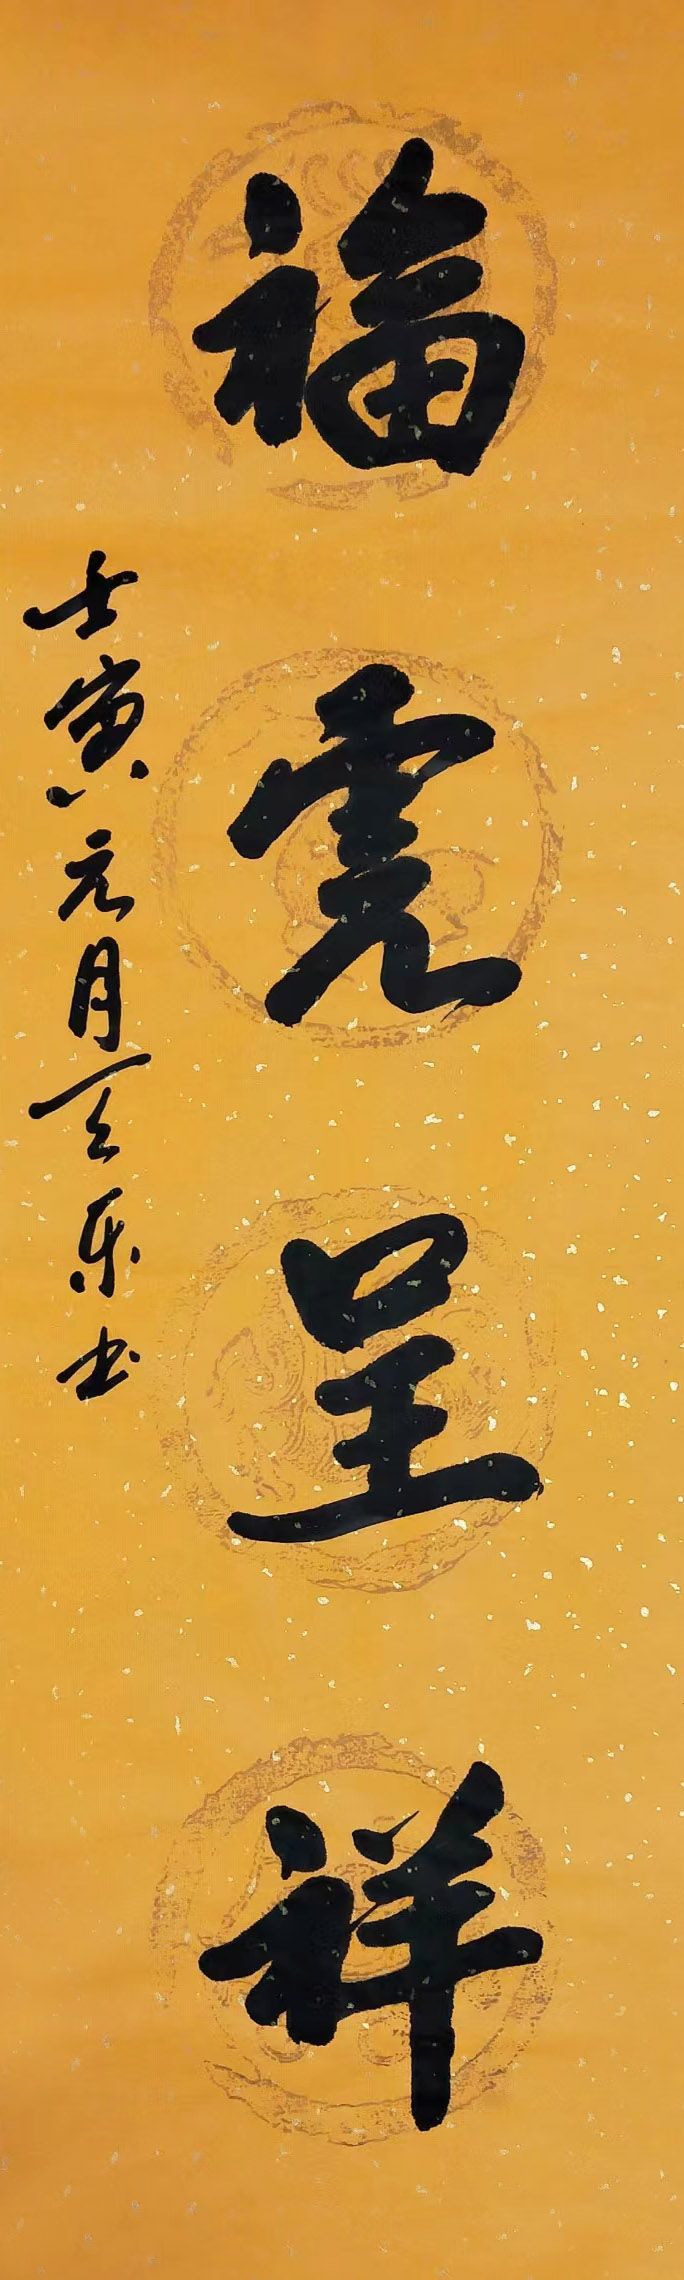 福虎呈祥
壬寅元月天乐书